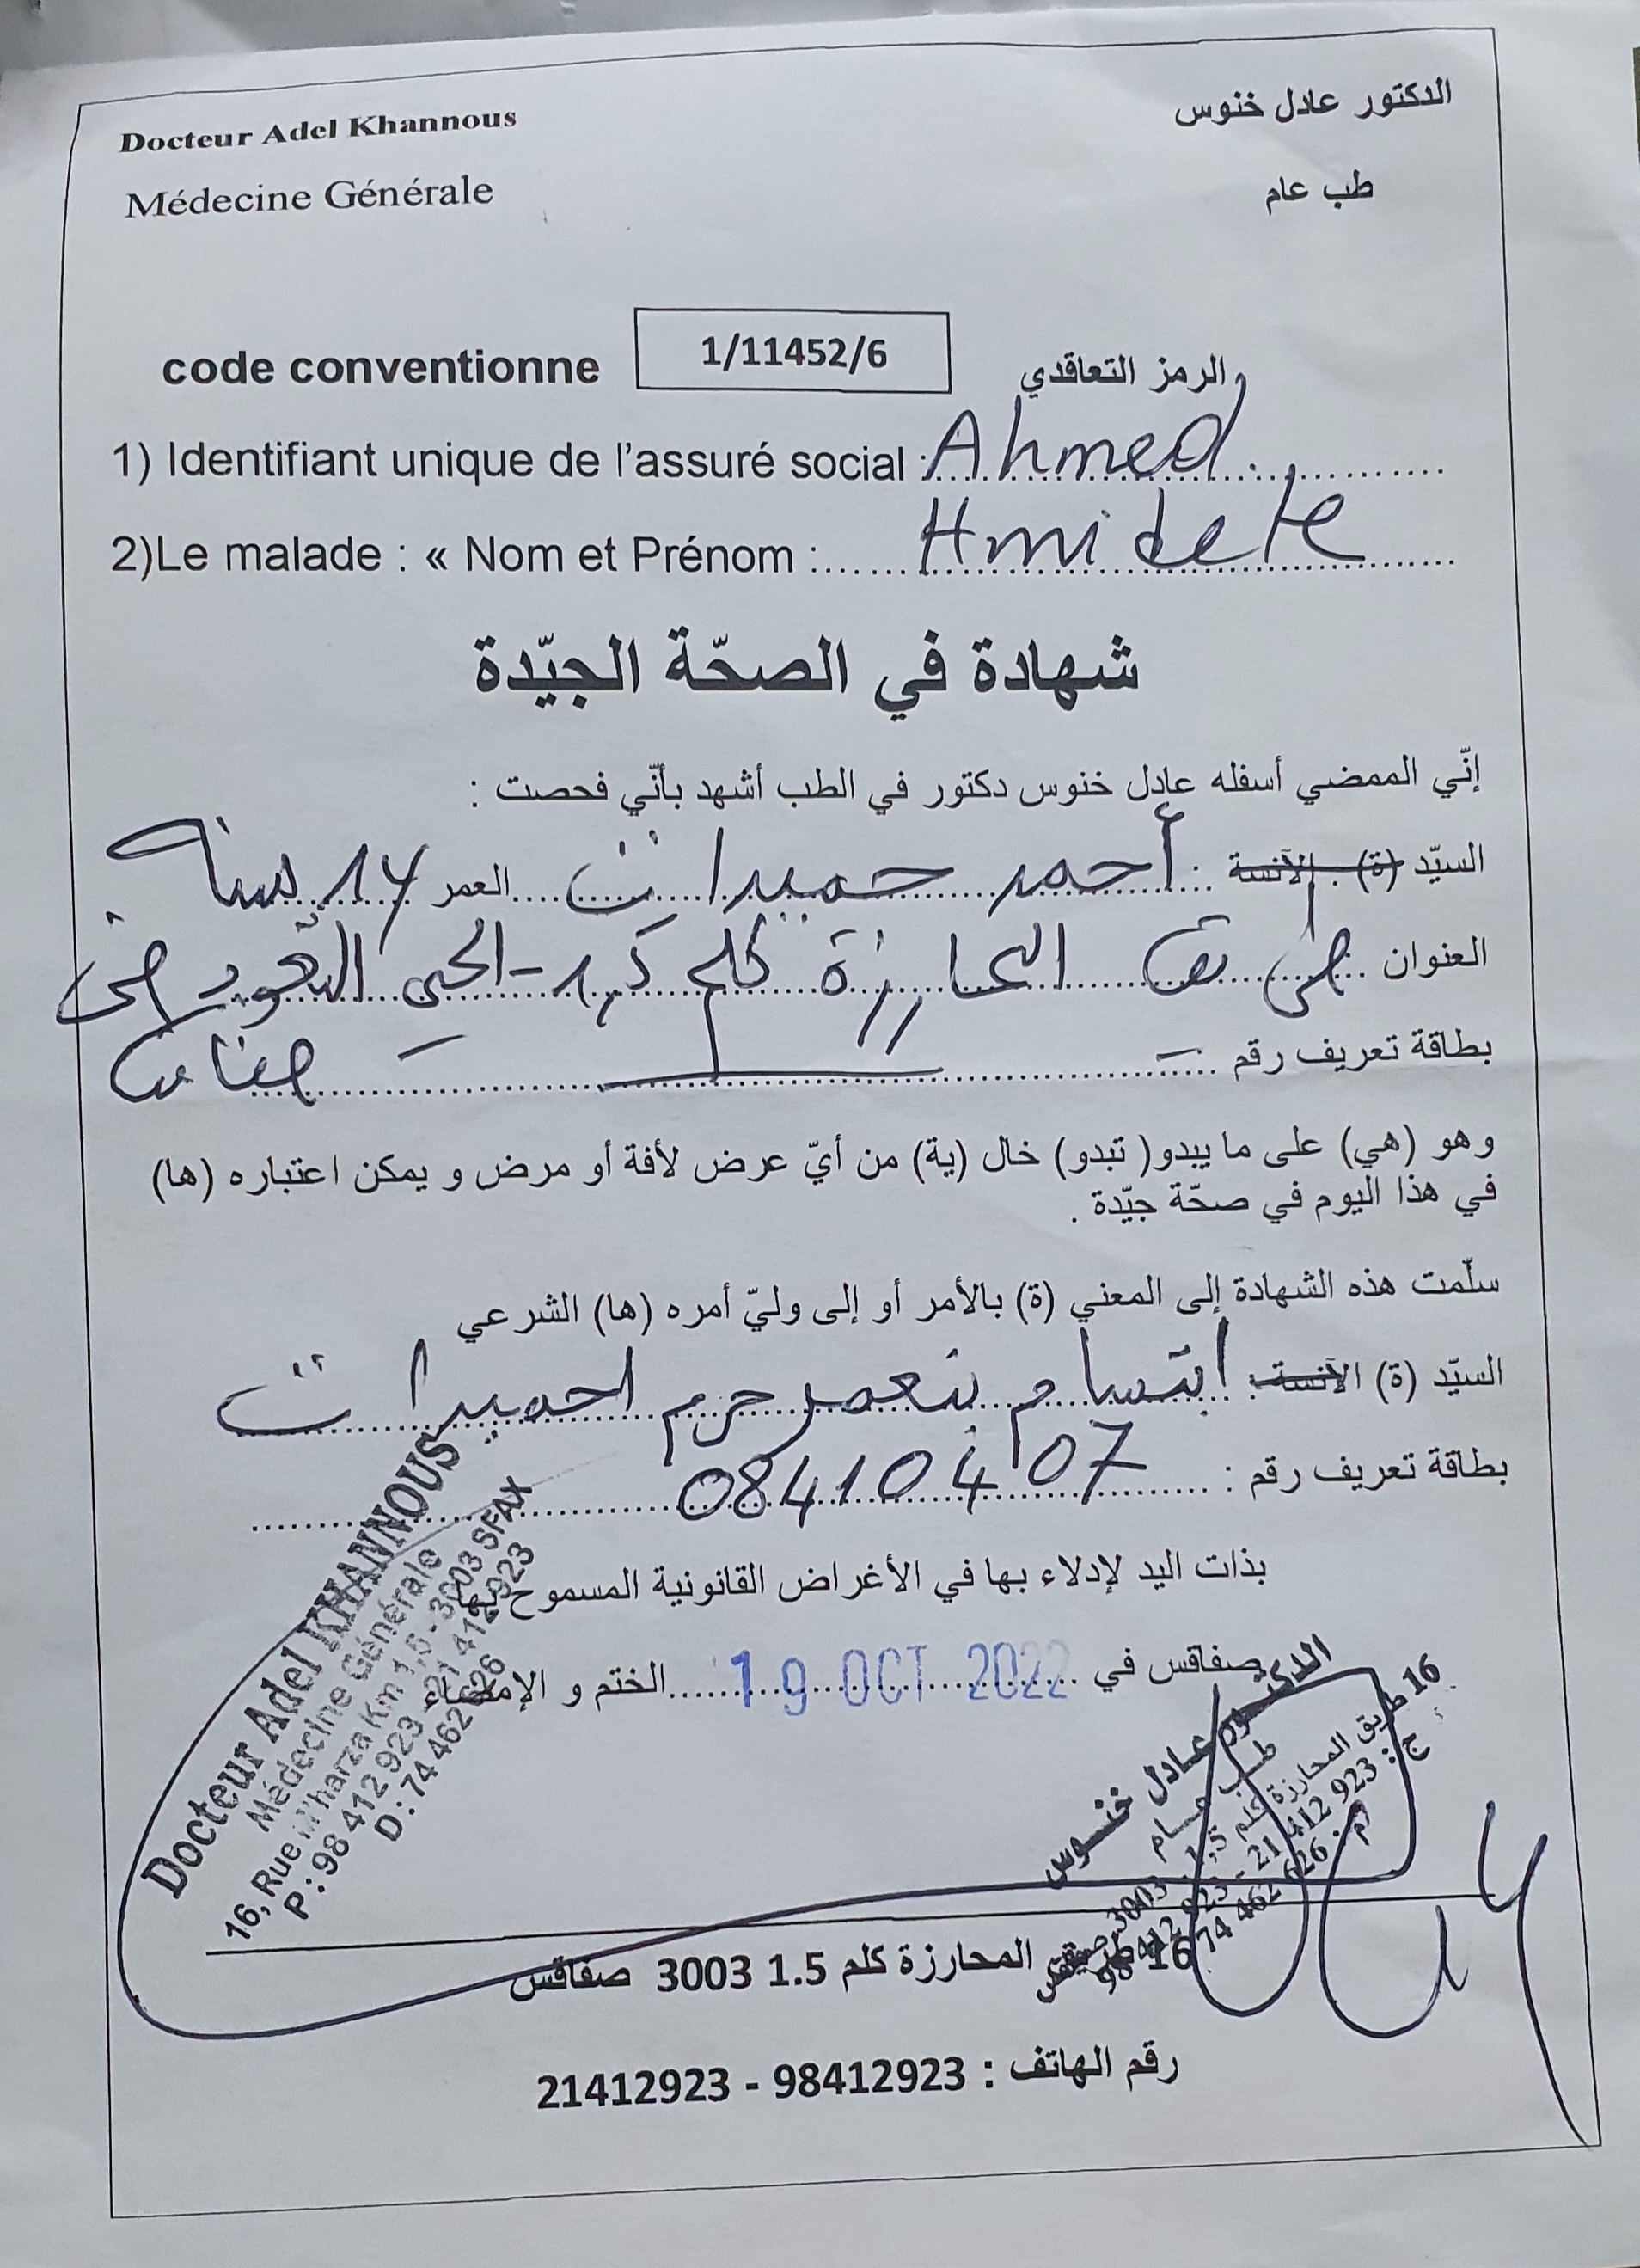 Docteur Adel Khannous
الدكتور عادل خنوس
Médecine Générale
طب عام
code conventionne 1/11452/6 الرمز التعاقدي
1) Identifiant unique de l'assuré social : Ahmed
2)Le malade : « Nom et Prénom : Hmidete
شهادة في الصحّة الجيّدة
إنّي الممضي أسفله عادل خنوس دكتور في الطب أشهد بأنّي فحصت :
السيّد (ة) . الآنسة : أحمد حميدات العمر 14 سنة
العنوان طريق المحارزة كلم
بطاقة تعريف رقم صفاقس
وهو (هي) على ما يبدو( تبدو) خال (ية) من أيّ عرض لأفة أو مرض و يمكن اعتباره (ها)
في هذا اليوم في صحّة جيّدة .
سلّمت هذه الشهادة إلى المعني (ة) بالأمر أو إلى وليّ أمره (ها) الشرعي
السيّد (ة) الآنسة : ابتسام بنعمر حرم احميدات
بطاقة تعريف رقم : 08410407
بذات اليد لإدلاء بها في الأغراض القانونية المسموح بها
صفاقس في 19 OCT 2022 الختم و الإمضاء
Docteur Adel KHANNOUS
Médecine Générale
16, Rue M'harza Km 1,5 - 3003 SFAX
P : 98 412 923 - 21 412 923
D : 74 462 626
الدكتور عادل خنوس
طب عام
16 طريق المحارزة كلم 1,5 - 3003 صفاقس
ج : 98 412 923 - 21 412 923
م : 74 462 626
16 طريق المحارزة كلم 1.5 3003 صفاقس
رقم الهاتف : 98412923 - 21412923